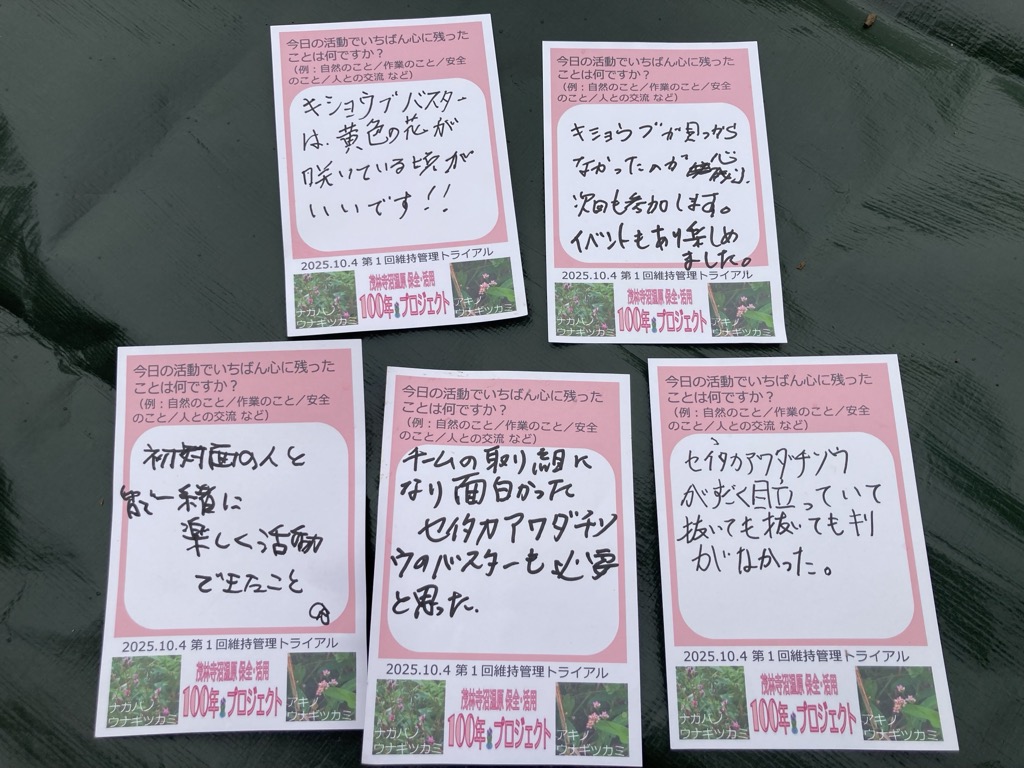 今日の活動でいちばん心に残った
ことは何ですか?
(例：自然のこと／作業のこと／安全
のこと／人との交流 など)
キショウブバスター
は、黄色の花が
咲いている頃が
いいです!!
2025.10.4 第1回維持管理トライアル
茂林寺沼湿原 保全・活用
100年プロジェクト
ナガバノ
ウナギツカミ
アキノ
ウナギツカミ
今日の活動でいちばん心に残った
ことは何ですか?
(例：自然のこと／作業のこと／安全
のこと／人との交流 など)
キショウブが見つから
なかったのが心
次回も参加します。
イベントもあり楽しめ
ました。
2025.10.4 第1回維持管理トライアル
茂林寺沼湿原 保全・活用
100年プロジェクト
ナガバノ
ウナギツカミ
アキノ
ウナギツカミ
今日の活動でいちばん心に残った
ことは何ですか?
(例：自然のこと／作業のこと／安全
のこと／人との交流 など)
初対面の人と
一緒に
楽しく活動
できたこと
2025.10.4 第1回維持管理トライアル
茂林寺沼湿原 保全・活用
100年プロジェクト
ナガバノ
ウナギツカミ
アキノ
ウナギツカミ
今日の活動でいちばん心に残った
ことは何ですか?
(例：自然のこと／作業のこと／安全
のこと／人との交流 など)
チームの取り組に
なり面白かった
セイタカアワダチソ
ウのバスターも必要
と思った.
2025.10.4 第1回維持管理トライアル
茂林寺沼湿原 保全・活用
100年プロジェクト
ナガバノ
ウナギツカミ
アキノ
ウナギツカミ
今日の活動でいちばん心に残った
ことは何ですか?
(例：自然のこと／作業のこと／安全
のこと／人との交流 など)
セイタカアワダチソウ
がすごく目立っていて
抜いても抜いてもキリ
がなかった。
2025.10.4 第1回維持管理トライアル
茂林寺沼湿原 保全・活用
100年プロジェクト
ナガバノ
ウナギツカミ
アキノ
ウナギツカミ